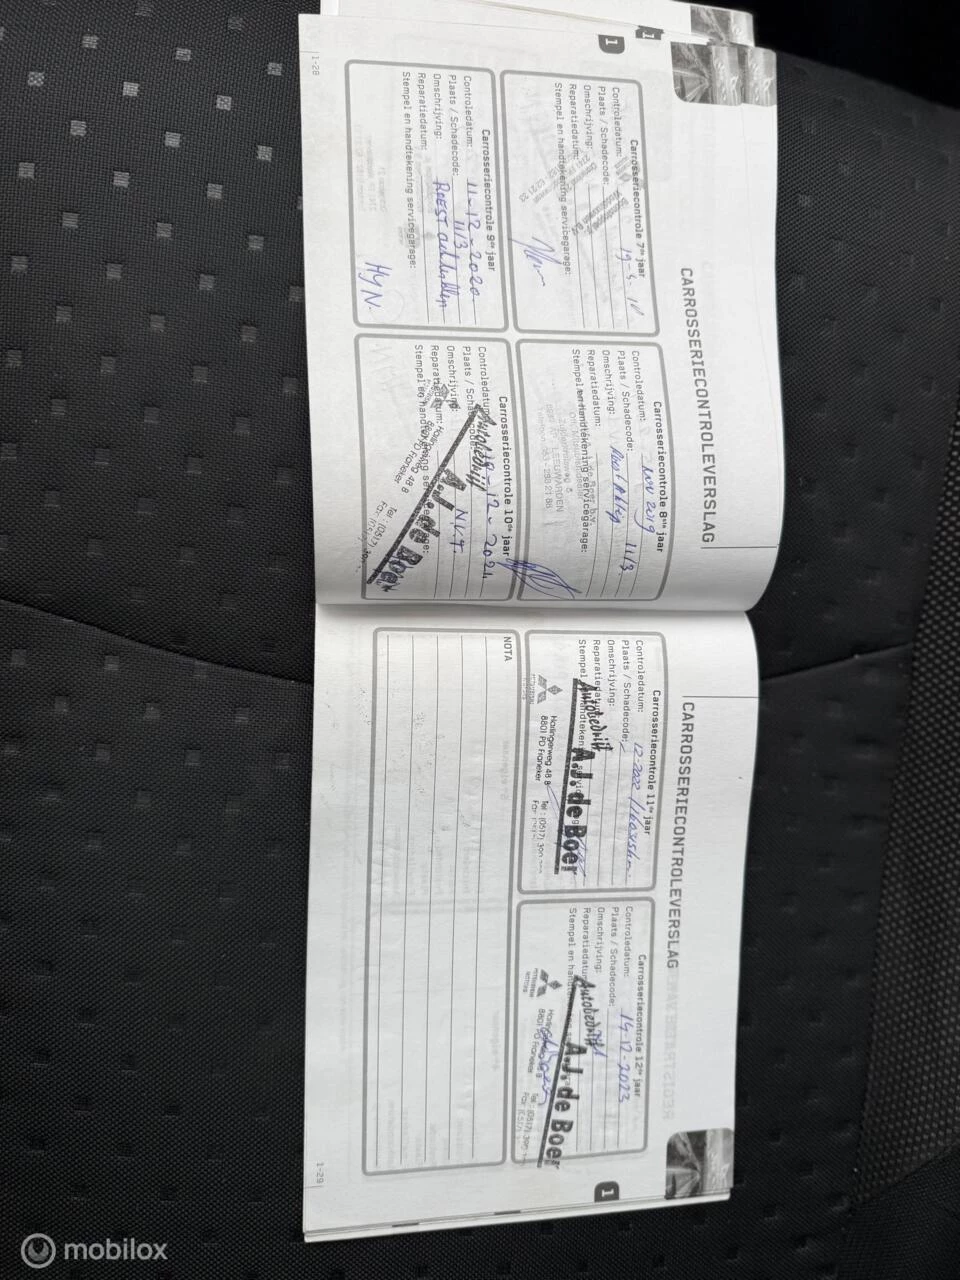 CARROSSERIECONTROLEVERSLAG
1
1
Carrosseriecontrole 7de jaar
Controledatum: 19-4-
Plaats / Schadecode:
Omschrijving:
Reparatiedatum:
Stempel en handtekening servicegarage:
Carrosseriecontrole 8ste jaar
Controledatum: Nov 2019
Plaats / Schadecode: 11/3
Omschrijving:
Reparatiedatum:
Stempel en handtekening servicegarage:
LEEUWARDEN
Carrosseriecontrole 9de jaar
Controledatum: 11-12-2020
Plaats / Schadecode: 11/3
Omschrijving: ROEST
Reparatiedatum:
Stempel en handtekening servicegarage:
HYN
Carrosseriecontrole 10de jaar
Controledatum: -12-2021
Plaats / Schadecode: N.V.T.
Omschrijving:
Reparatiedatum:
Stempel en handtekening servicegarage:
Autobedrijf
A.J. de Boer
Harlingerweg 48 B
8801 PD Franeker
Tel.: (0517)
1-28
CARROSSERIECONTROLEVERSLAG
Carrosseriecontrole 11de jaar
Controledatum: 12-2022
Plaats / Schadecode:
Omschrijving:
Reparatiedatum:
Stempel
Autobedrijf
A.J. de Boer
Harlingerweg 48 B
8801 PD Franeker
Tel.: (0517)
Carrosseriecontrole 12de jaar
Controledatum: 14-12-2023
Plaats / Schadecode:
Omschrijving:
Reparatiedatum:
Stempel en
Autobedrijf
A.J. de Boer
8801 PD Franeker
Tel.: (0517)
1
NOTA
1-29
mobilox